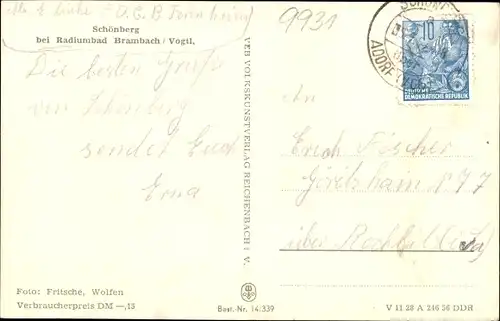 9931
Schönberg
bei Radiumbad Brambach / Vogtl.
Die besten Grüße
von Schönberg
sendet Euch
Erna
VEB VOLKSKUNSTVERLAG REICHENBACH i. V.
SCHÖN
ADORF
10
DEMOKRATISCHE REPUBLIK
An
Erich Fischer
77
über
Foto: Fritsche, Wolfen
Verbraucherpreis DM —,15
Best.-Nr. 14/339
V 11 28 A 246 56 DDR